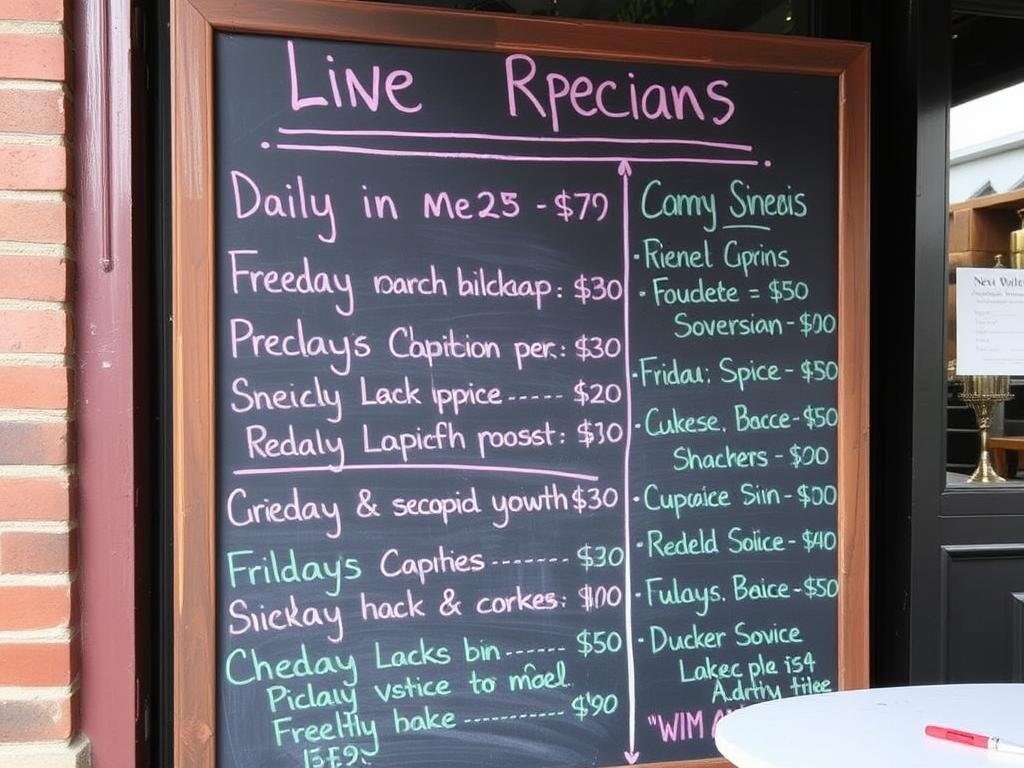 Live Rpecians
Daily in Me25 - $79
Freeday narch bilckap: $30
Preclays Capition per.: $30
Sneicly Lack Ippice ----- $20
Redaly Lapicfh poosst: $10
Grieday & secopid yowth $30
Frildays Capties ------- $30
Sickay hack & corkes: $100
Cheday Lacks bin ------ $50
Piclay vstice to
Freelty bake ---------- $90
Comy Sineais
· Rienel Cprins
· Foudete = $50
Soversian - $00
· Fridau: Spice - $50
· Cukese. Bacce - $50
Shachers - $00
· Cupaice Siin - $00
· Redeld Soiice - $40
· Fulays. Baice - $50
· Ducker Sovice
Lakec ple is4
"WIM